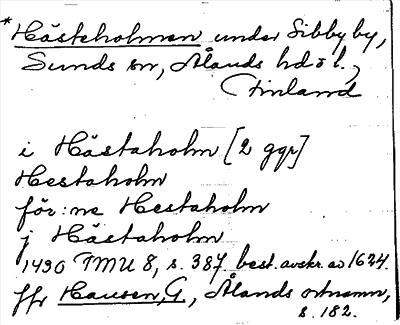 *Hästeholmen under Sibbyby,
Sunds sn, Ålands hd o l.,
Finland
i Hästaholm [2 ggr]
Hestaholm
för:ne Hestaholm
j Hästaholm
1490 TMU 8, s. 387, best. avskr. av 1624.
Jfr Hausen, G., Ålands ortnamn,
s. 182.